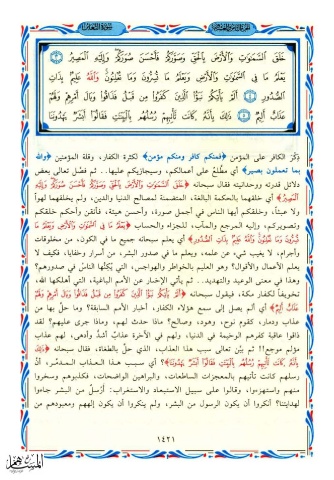 خَلَقَ السَّمَاوَاتِ وَالْأَرْضَ بِالْحَقِّ وَصَوَّرَكُمْ فَأَحْسَنَ صُوَرَكُمْ وَإِلَيْهِ الْمَصِيرُ
يَعْلَمُ مَا فِي السَّمَاوَاتِ وَالْأَرْضِ وَيَعْلَمُ مَا تُسِرُّونَ وَمَا تُعْلِنُونَ وَاللَّهُ عَلِيمٌ بِذَاتِ
الصُّدُورِ أَلَمْ يَأْتِكُمْ نَبَأُ الَّذِينَ كَفَرُوا مِن قَبْلُ فَذَاقُوا وَبَالَ أَمْرِهِمْ وَلَهُمْ
عَذَابٌ أَلِيمٌ ذَٰلِكَ بِأَنَّهُ كَانَت تَّأْتِيهِمْ رُسُلُهُم بِالْبَيِّنَاتِ فَقَالُوا أَبَشَرٌ يَهْدُونَنَا
ذكر الكافر على المؤمن ﴿فمنكم كافر ومنكم مؤمن﴾ لكثرة الكفار، وقلة المؤمنين ﴿والله
بما تعملون بصير﴾ أي مطّلع على أعمالكم، وسيجازيكم عليها.. ثم فصّل تعالى بعض
دلائل قدرته ووحدانيته فقال سبحانه ﴿خَلَقَ السَّمَاوَاتِ وَالْأَرْضَ بِالْحَقِّ وَصَوَّرَكُمْ فَأَحْسَنَ صُوَرَكُمْ وَإِلَيْهِ
الْمَصِيرُ﴾ أي خلقهما بالحكمة البالغة، المتضمنة لمصالح الدنيا والدين، ولم يخلقهما لهواً
ولا عبثاً، وخلقكم أيها الناس في أجمل صورة، وأحسن هيئة، فأتقن وأحكم خلقكم
وتصويركم، وإليه المرجع والمآب، للجزاء والحساب ﴿يَعْلَمُ مَا فِي السَّمَاوَاتِ وَالْأَرْضِ وَيَعْلَمُ مَا
تُسِرُّونَ وَمَا تُعْلِنُونَ وَاللَّهُ عَلِيمٌ بِذَاتِ الصُّدُورِ﴾ أي يعلم سبحانه جميع ما في الكون، من مخلوقات
وأجرام، لا يغيب شيء عن علمه، ويعلم ما في صدور البشر، من أسرار وخفايا، فكيف لا
يعلم الأعمال والأقوال؟ وهو العليم بالخواطر والهواجس، التي يُكنّها الناس في صدورهم؟
وهذا في معنى الوعيد والتهديد.. ثم يأتي الإخبار عن الأمم الباغية، التي أهلكها الله،
تخويفاً لكفار مكة، فيقول سبحانه ﴿أَلَمْ يَأْتِكُمْ نَبَأُ الَّذِينَ كَفَرُوا مِن قَبْلُ فَذَاقُوا وَبَالَ أَمْرِهِمْ وَلَهُمْ
عَذَابٌ أَلِيمٌ﴾ أي ألم يصل إلى سمع هؤلاء الكفار، أخبار الأمم السابقة؟ وما حلّ بها من
عذاب ودمار، كقوم نوح، وهود، وصالح؟ ماذا حدث لهم، وماذا جرى عليهم؟ لقد
ذاقوا عاقبة كفرهم الوخيمة في الدنيا، ولهم في الآخرة عذاب أشدّ وأدهى، لهم عذاب
مؤلم موجع!! ثم بيّن تعالى سبب هذا العذاب، الذي حلّ بالطغاة، فقال سبحانه ﴿ذَٰلِكَ
بِأَنَّهُ كَانَت تَّأْتِيهِمْ رُسُلُهُم بِالْبَيِّنَاتِ فَقَالُوا أَبَشَرٌ يَهْدُونَنَا﴾؟ أي سبب هذا العذاب المدمّر، أنّ
رسلهم كانت تأتيهم بالمعجزات الساطعات، والبراهين الواضحات، فكذبوهم وسخروا
منهم واستهزءوا، وقالوا على سبيل الاستبعاد والاستغراب: أرسلٌ من البشر جاءوا
لهدايتنا؟ أنكروا أن يكون الرسول من البشر، ولم ينكروا أن يكون إلههم ومعبودهم من
١٤٢١